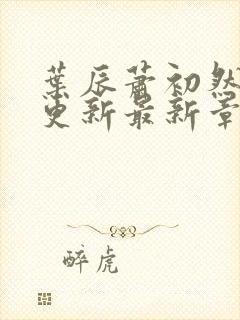 葉辰蕭初然
更新最新章
醉虎